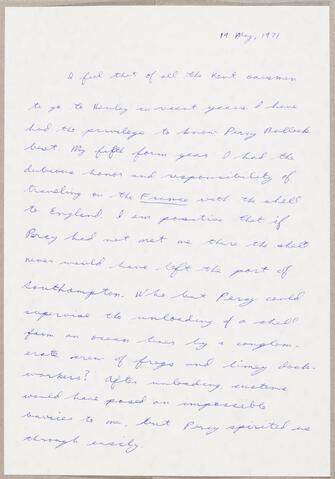 19 May, 1971
I feel that of all the Kent oarsmen
to go to Henley in recent years I have
had the privilege to know Percy Bullock
best. My fifth form year I had the
dubious honor and responsibility of
traveling on the France with the shell
to England. I am positive that if
Percy had not met me there the shell
never would have left the port of
Southampton. Who but Percy could
supervise the unloading of a shell
from an ocean liner by a conglom-
erate crew of frogs and limey dock-
workers? After unloading, customs
would have posed an impossible
barrier to me, but Percy spirited us
through easily.